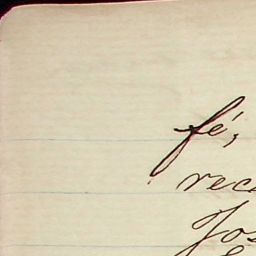 fé,
rec
Jos